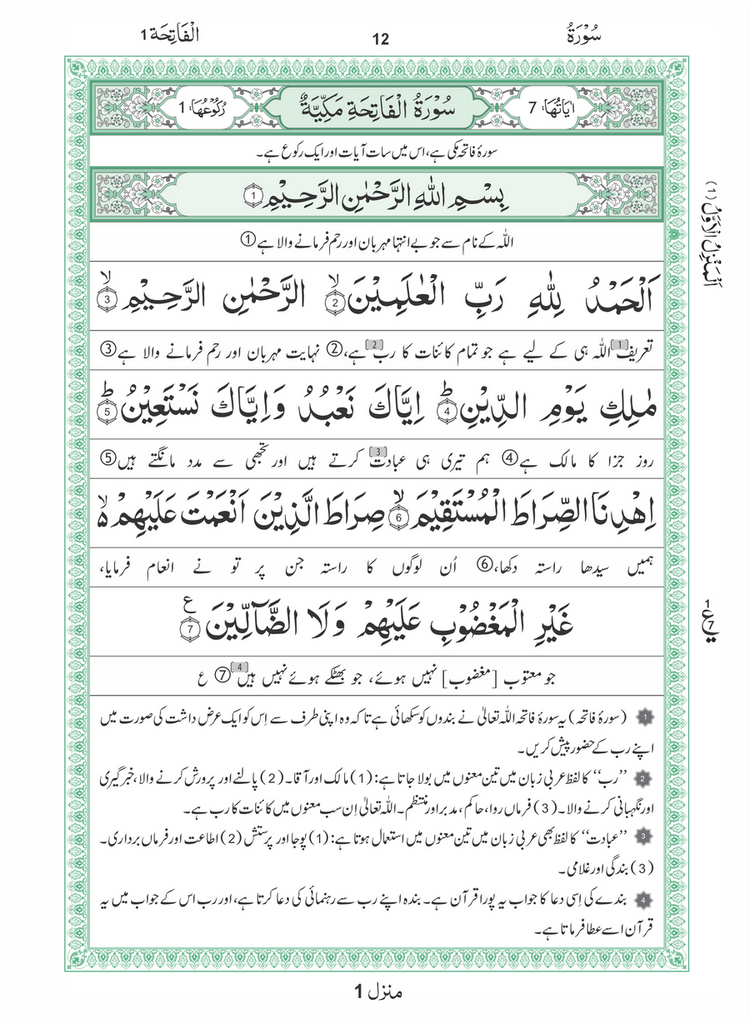 سُوْرَةُ 12 اَلْفَاتِحَة 1
اٰیَاتُهَا: 7 سُوْرَةُ الْفَاتِحَةِ مَكِّيَّةٌ رُكُوْعُهَا: 1
سورۂ فاتحہ مکی ہے، اس میں سات آیات اور ایک رکوع ہے۔
بِسْمِ اللّٰهِ الرَّحْمٰنِ الرَّحِيْمِ ①
اللّٰہ کے نام سے جو بے انتہا مہربان اور رحم فرمانے والا ہے ①
اَلْحَمْدُ لِلّٰهِ رَبِّ الْعٰلَمِيْنَ ۙ② الرَّحْمٰنِ الرَّحِيْمِ ۙ③
تعریف [1] اللّٰہ ہی کے لیے ہے جو تمام کائنات کا رب [2] ہے، ② نہایت مہربان اور رحم فرمانے والا ہے ③
مٰلِكِ يَوْمِ الدِّيْنِ ؕ④ اِيَّاكَ نَعْبُدُ وَاِيَّاكَ نَسْتَعِيْنُ ؕ⑤
روز جزا کا مالک ہے ④ ہم تیری ہی عبادت [3] کرتے ہیں اور تجھی سے مدد مانگتے ہیں ⑤
اِهْدِنَا الصِّرَاطَ الْمُسْتَقِيْمَ ۙ⑥ صِرَاطَ الَّذِيْنَ اَنْعَمْتَ عَلَيْهِمْ ۙ
ہمیں سیدھا راستہ دکھا، ⑥ اُن لوگوں کا راستہ جن پر تو نے انعام فرمایا،
غَيْرِ الْمَغْضُوْبِ عَلَيْهِمْ وَلَا الضَّآلِّيْنَ ⑦ ع
جو معتوب [مغضوب] نہیں ہوئے، جو بھٹکے ہوئے نہیں ہیں [4] ⑦ ع
1 (سورۂ فاتحہ) یہ سورۂ فاتحہ اللّٰہ تعالیٰ نے بندوں کو سکھائی ہے تاکہ وہ اپنی طرف سے اِس کو ایک عرض داشت کی صورت میں
اپنے رب کے حضور پیش کریں۔
2 ’’رب‘‘ کا لفظ عربی زبان میں تین معنوں میں بولا جاتا ہے: (1) مالک اور آقا۔ (2) پالنے اور پرورش کرنے والا، خبر گیری
اور نگہبانی کرنے والا۔ (3) فرماں روا، حاکم، مدبر اور منتظم۔ اللّٰہ تعالیٰ اِن سب معنوں میں کائنات کا رب ہے۔
3 ’’عبادت‘‘ کا لفظ بھی عربی زبان میں تین معنوں میں استعمال ہوتا ہے: (1) پوجا اور پرستش (2) اطاعت اور فرماں برداری۔
(3) بندگی اور غلامی۔
4 بندے کی اِسی دعا کا جواب یہ پورا قرآن ہے۔ بندہ اپنے رب سے رہنمائی کی دعا کرتا ہے، اور رب اس کے جواب میں یہ
قرآن اسے عطا فرماتا ہے۔
اَلْمَنْزِلُ الْاَوَّلُ (1)
1
ع
7
منزل 1